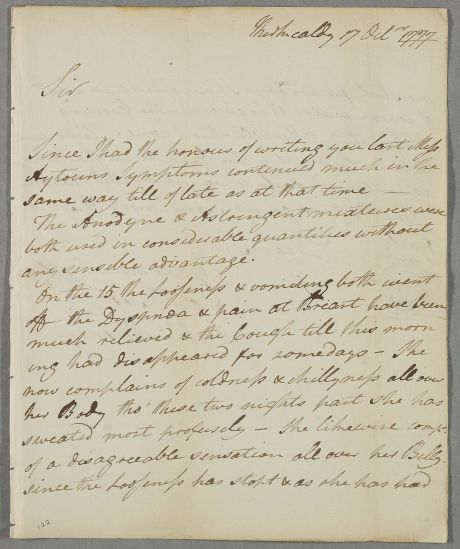 Kirkcaldy 17 Octr. 1777
Sir
Since I had the honour of writing you last Miss
Aytouns Symptoms continued much in the
same way till of late as at that time —
The Anodyne & Astringent mixtures were
both used in considerable quantities without
any sensible advantage.
On the 15 the Looseness & vomiting both went
off the Dyspnœa & pain at Breast have been
much relieved & the Cough till this morn
ing had disappeared for somedays — She
now complains of coldness & chillyness all over
her Body tho' these two nights past she has
sweated most profusely — She likewise comps.
of a disagreeable sensation all over her Belly
since the Looseness has stopt & as she has had
122